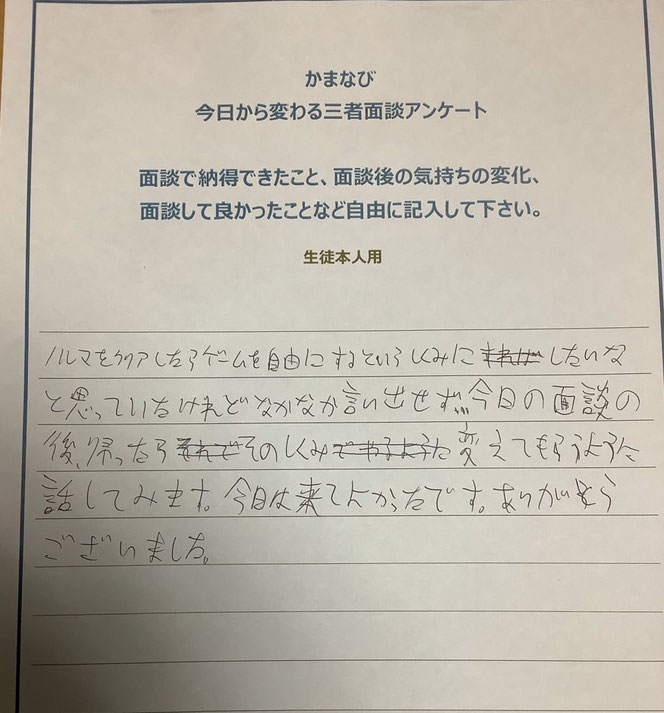 かまなび
今日から変わる三者面談アンケート
面談で納得できたこと、面談後の気持ちの変化、
面談して良かったことなど自由に記入して下さい。
生徒本人用
ノルマをクリアしたらゲームを自由にするというしくみにしたいな
と思っていたけれどなかなか言い出せず…今日の面談の
後、帰ったらそのしくみに変えてもらうように
話してみます。今日は来てよかったです。ありがとう
ございました。